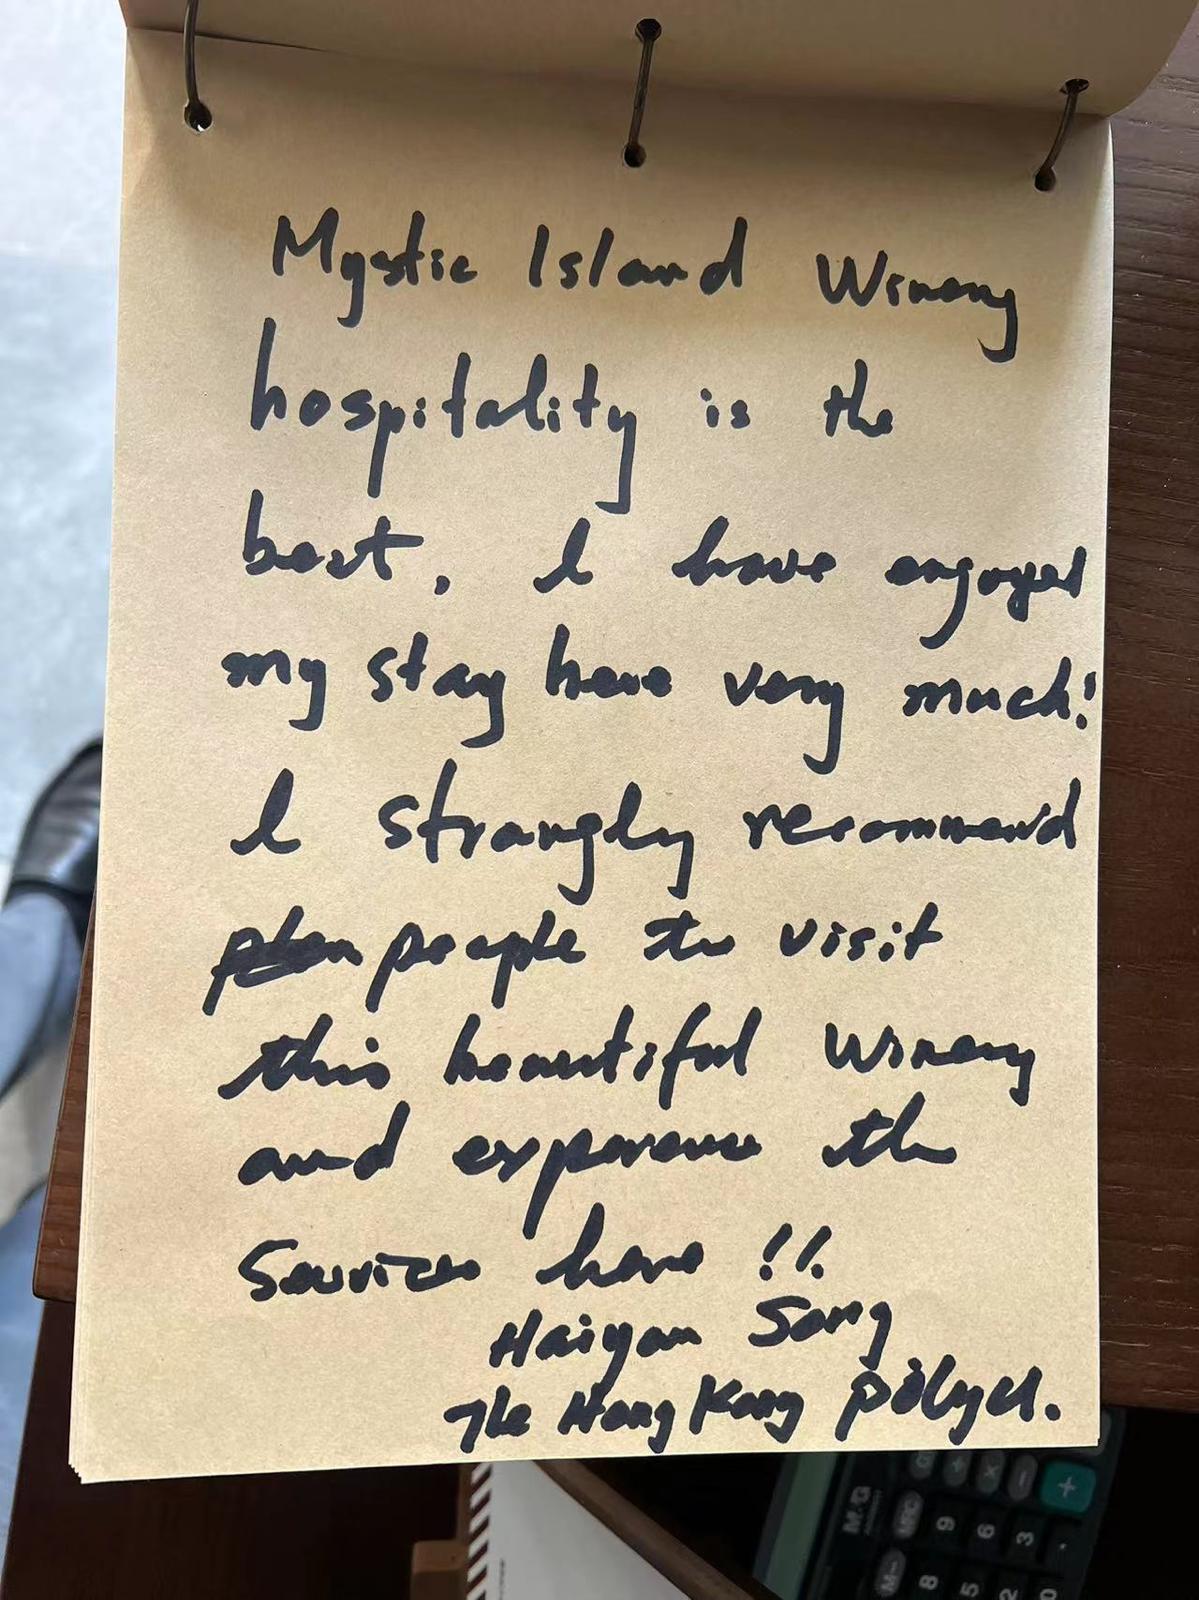 Mystic Island Winery
hospitality is the
best. I have enjoyed
my stay here very much!
I strongly recommend
people to visit
this beautiful winery
and experience the
Services here !!
Haiyan Song
The Hong Kong polyU.
M&G
MRC
M-
+
×
-
+
9
6
3
.
8
5
2
0